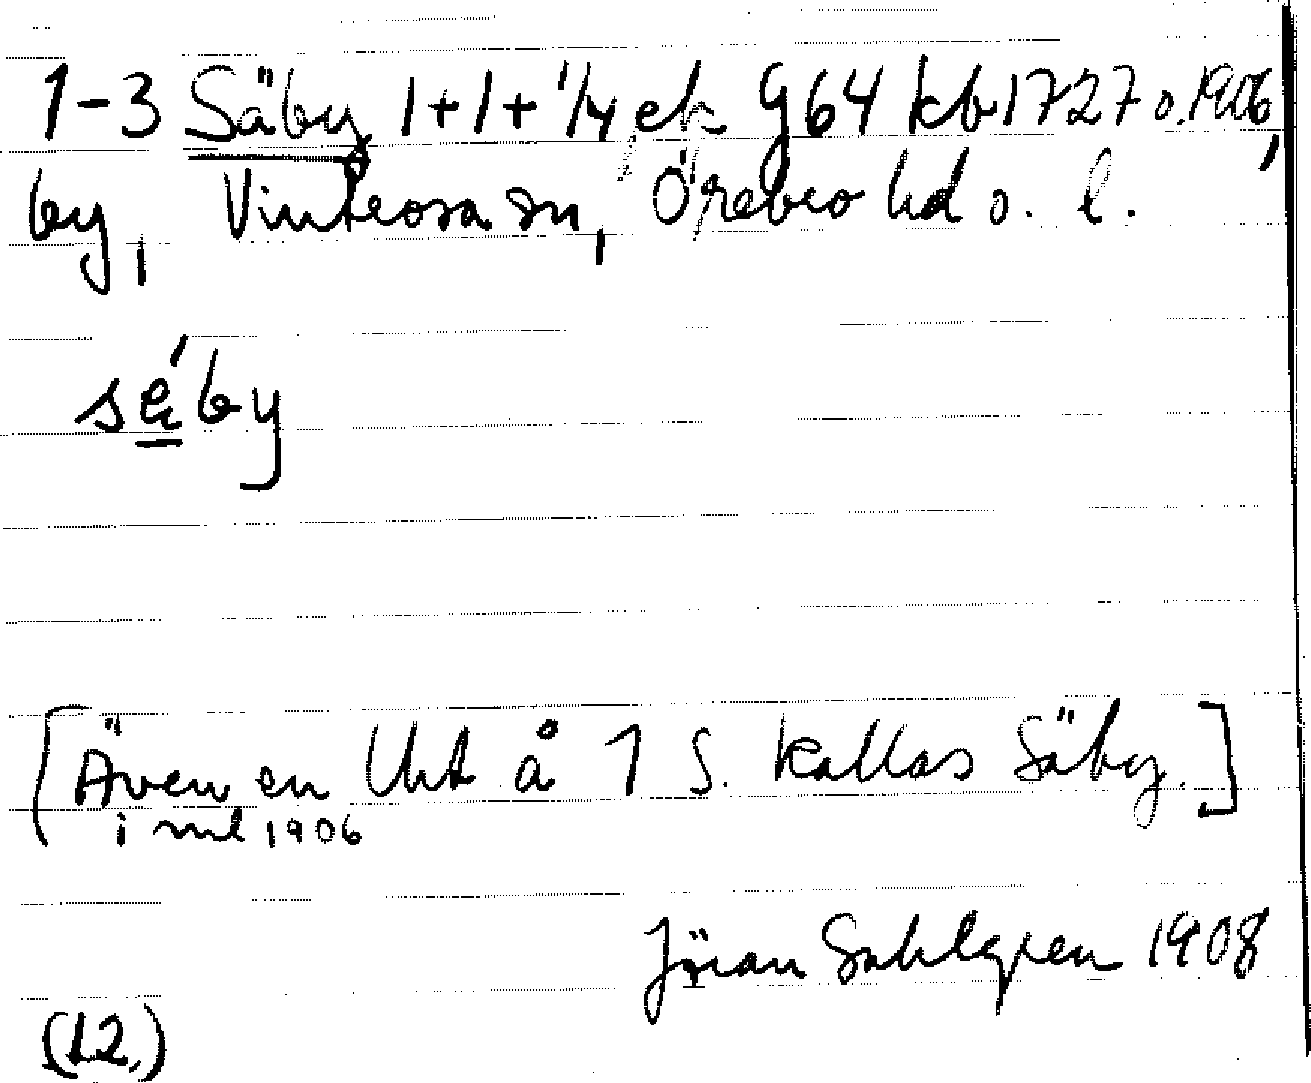 1-3 Säby 1+1+1/4 ek g64 kb 1727 o. 1906,
by, Vintrosa sn, Örebro hd o. l.
sä́by
[Även en Uht å 1 S. kallas Säby.]
i ml 1906
Jöran Sahlgren 1908
(12.)